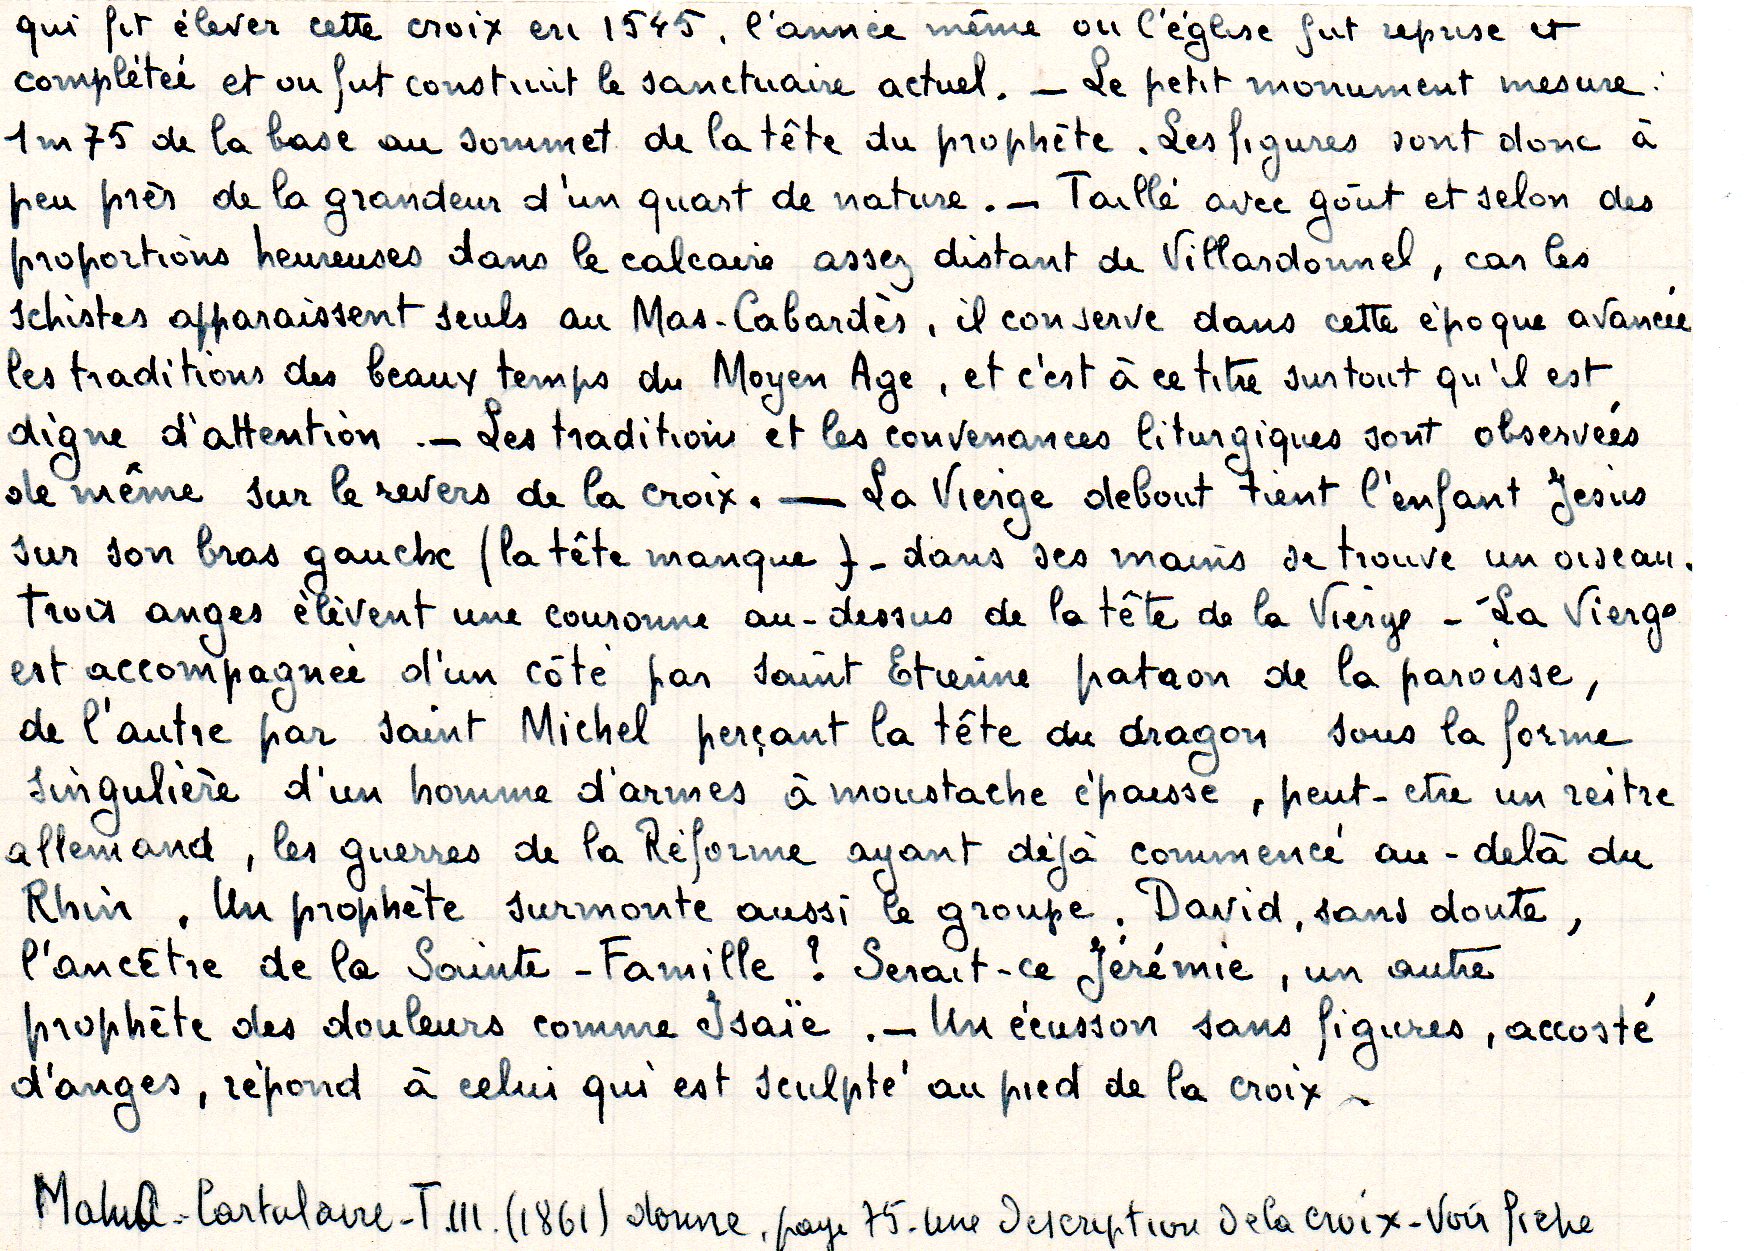 qui fit élever cette croix en 1545, l'année même ou l'église fut reprise et
complétée et ou fut construit le sanctuaire actuel. — Le petit monument mesure :
1m75 de la base au sommet de la tête du prophète. Les figures sont donc à
peu près de la grandeur d'un quart de nature. — Taillé avec goût et selon des
proportions heureuses dans le calcaire assez distant de Villardonnel, car les
schistes apparaissent seuls au Mas-Cabardès, il conserve dans cette époque avancée
les traditions des beaux temps du Moyen Age, et c'est à ce titre surtout qu'il est
digne d'attention. — Les traditions et les convenances liturgiques sont observées
de même sur le revers de la croix. — La Vierge debout tient l'enfant Jésus
sur son bras gauche (la tête manque) - dans ses mains se trouve un oiseau.
Trois anges élèvent une couronne au-dessus de la tête de la Vierge - La Vierge
est accompagnée d'un côté par saint Etienne patron de la paroisse,
de l'autre par saint Michel perçant la tête du dragon sous la forme
singulière d'un homme d'armes à moustache épaisse, peut-etre un reitre
allemand, les guerres de la Réforme ayant déjà commencé au-delà du
Rhin. Un prophète surmonte aussi le groupe. David, sans doute,
l'ancêtre de la Sainte-Famille ? Serait-ce Jérémie, un autre
prophète des douleurs comme Isaïe. — Un écusson sans figures, accosté
d'anges, répond à celui qui est sculpté au pied de la croix -
Mahul - Cartulaire - T.III. (1861) donne, page 75 - une description de la croix - Voir fiche